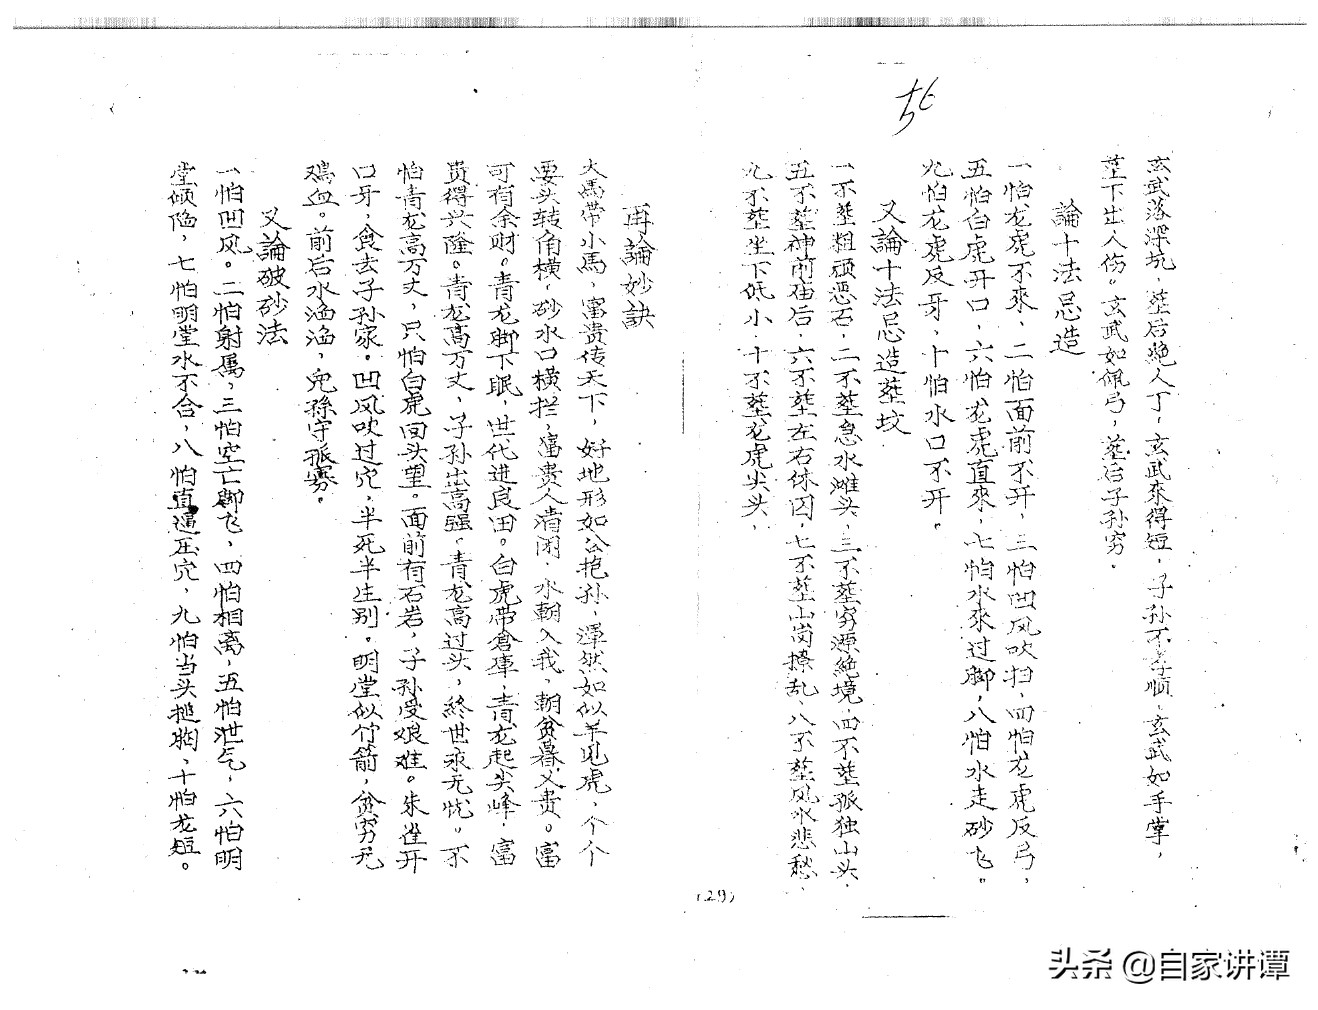 玄武落深坑，塟后絶人丁，玄武來得短，子孙不孝顺，玄武如手掌，
塟下出人伤。玄武如佩弓，塟后子孙穷．
論十法忌造
一怕龙虎不來，二怕面前不开，三怕凹风吹扫，四怕龙虎反弓，
五怕白虎开口，六怕龙虎直來，七怕水來过脚，八怕水走砂飞。
九怕龙虎反牙，十怕水口不开。
又論十法忌造塟坟
一不塟粗顽恶石，二不塟急水滩头，三不塟穷源絶境，四不塟孤独山头，
五不塟神前庙后，六不塟左右休囚，七不塟山岗撩乱，八不塟风水悲愁，
九不塟坐下低小，十不塟龙虎尖头，
再論妙訣
大馬带小馬，富贵传天下，好地形如公抱孙，浑然如似羊见虎，个个
要头转角横，砂水口横拦，富贵人清闭，水朝入我，朝贫暮又贵。富
可有余财。青龙脚下眠，世代进良田。白虎带倉庫，青龙起尖峰，富
贵得兴隆。青龙高万丈，子孙出高强。青龙高过头，終世永无忧。不
怕青龙高万丈，只怕白虎回头望。面前有石岩，子孙受娘难。朱雀开
口牙，食去子孙家。凹风吹过穴，半死半生别。明堂似竹箭，贫穷无
鳮血。前后水渔渔，儿孫守孤寡。
又論破砂法
一怕凹风。二怕射属，三怕空亡脚飞，四怕相离，五怕泄气，六怕明
堂倾陷，七怕明堂水不合，八怕直逼压穴，九怕当头搥胸，十怕龙短。
(29)
头条 @自家讲谭